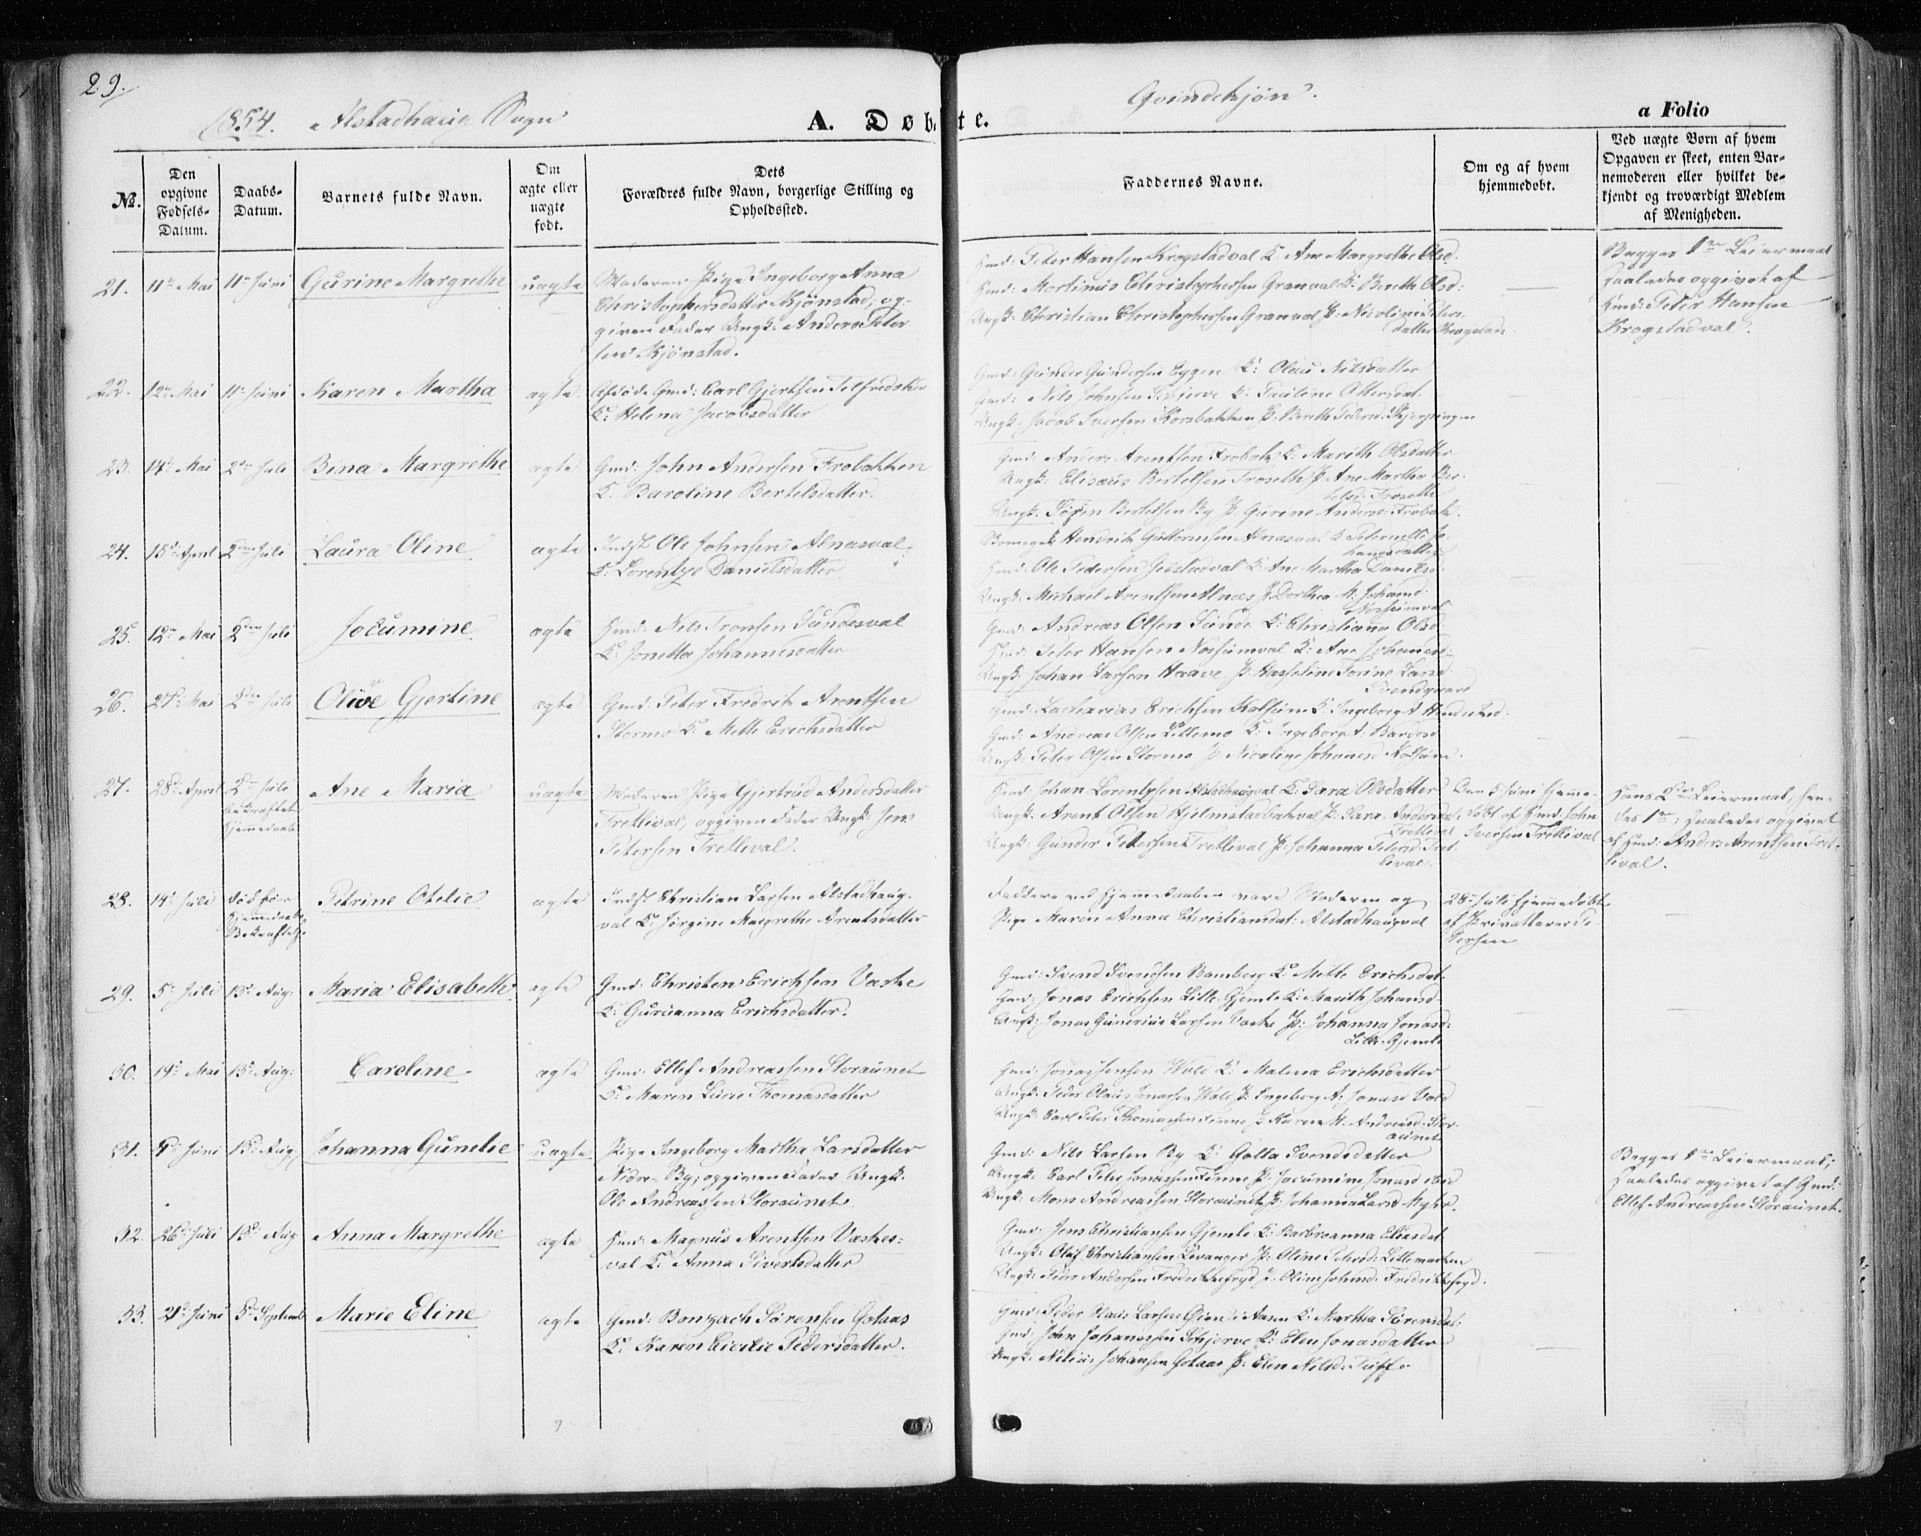 29.
1854. Alstadhaug Sogn
A. Døbte.
Qvindekjøn.
a Folio
No.
Den opgivne Fødsels-Datum.
Daabs-Datum.
Barnets fulde Navn.
Om ægte eller uægte født.
Dets Forældres fulde Navn, borgerlige Stilling og Opholdssted.
Faddernes Navne.
Om og af hvem hjemmedøbt.
Ved uægte Børn af hvem Opgaven er skeet, enten Barnemoderen eller hvilket bekjendt og troværdigt Medlem af Menigheden.
21. 11te Mai 11te Juni Gurine Margrethe uægte
Moderen Pige Ingeborg Anna
Christophersdatter Kjønstad, op-
given Fader Ungk: Anders Peter
sen Kjønstad.
Hmd: Peter Hansen Krogstadval K. Ane Margrethe Olsd.
Hmd: Martinus Christophersen Granval K: Berethe Olsd:
Ungk: Christian Christophersen Granval P: Nicolina Peters
datter Krogstad.
Begges 1te Leiermaal
saaledes opgivet af
Hmd: Peter Hansen
Krogstadval.
22. 12te Mai 11te Juni Karen Martha ægte
Afdøde Gmd: Carl Gjertsen
K: Helena Jacobsdatter
Gmd: Gunder Gundersen Eggen K: Olava Nilsdatter
Gmd: Nils Johnsen Schjerve K. Pauline Ottersdat.
Ungk: Jacob Iversen Korsbakken P. Bereth Peders:
23. 14de Mai 2den Juli Bina Margrethe ægte
Gmd: John Andersen Frobakken
K. Baroline Bertelsdatter.
Gmd: Anders Arentsen Frobak K. Marith Olsdatter
Ungk: Elisæus Bertelsen Troseth P. Ane Martha Ber-
telsd: Troseth
Ungk: Bertelsen By P. Gurine Andersd: Frobak.
24. 15de April 2den Juli Laura Oline ægte
Indst Ole Johnsen Alnæsval,
K. Lorentze Danielsdatter
Hendrik Guttormsen K. Peternelle Jo-
hannesdatter
Hmd: Ole Pedersen K. Ane Martha Danielsd:
Ungk: Michael Arentsen Alnæs P. Dorthea M. Johansd:
25. 12te Mai 2den Juli Jocumine ægte
Hmd: Nils Tronsen Sundesval
K. Jonetta Johannesdatter
Gmd: Andreas Olsen Sunde K: Christiana Olsd.
Hmd: Peter Hansen K: Ane Johansd:
Ungk: Johan Larsen Haave P: Hasseline Torine Larsd
26. 27de Mai 2den Juli Olive Gjertine ægte
Gmd: Peter Fredrik Arentsen
Stormo K. Mette Erichsdatter
Gmd: Zacharias Erichsen K. Ingeborg A Hendriksd:
Gmd: Andreas Olsen Lillemo K. Ingeborg A: Bardosd
Ungk: Peter Olsen Stormo P. Nicoline Johansd
27. 28de April 2den Juli Ane Maria uægte
bekræftet
hjemmedaab
Moderen Pige Gjertrud Andersdatter
Tretlival, opgiven Fader Ungk: Jens
Petersen Tretleval.
Hmd: Johan Lorentzsen Alstadhaugval K. Sara Olsdatter
Ungk: Arent Olsen Hjelmstadbakval P. Sara Andersd:
Tretleval
Ungk: Gunder Petersen Tretleval P. Johanna Petersd: Tret-
leval.
Den 5 Juni hjemme-
døbt af Hmd: John
Iversen Tretleval
Hans 2det Leiermaal, hen-
des 1te; saaledes opgivet
af Hmd: Anders Arentsen Tret-
leval.
28. 14de Juli død før
hjemmedaabs
Bekræftelse
Petrine Otelie ægte
Indst Christian Larsen Alstadhaug-
val K. Jørgine Margrethe Arentsdatter
Faddere ved hjemmedaaben vare Moderen og
Pige Maren Anna Christiansdat: Alstadhaugval
28de Juli hjemmedøbt
af Privatlærer Pe-
tersen
29. 5te Juli 13de Aug: Maria Elisabeth ægte
Gmd: Christen Erichsen Vaske
K. Guruanna Erichsdatter.
Gmd: Svend Svendsen Bamberg K. Mette Erichsdat
Gmd: Jonas Erichsen Lille Gjemle K. Marith Johansd
Ungk: Jonas Gunerius Larsen Vaske P: Johanna Jonasd:
Lille Gjemle
30. 19de Mai 13de Aug: Caroline ægte
Gmd: Ellef Andreassen Storaunet
K. Maren Lucie Thomasdatter
Gmd: Jonas Jensen Wold K. Malena Erichsdatter
Ungk: Peder Olaus Jonassen Wold P. Ingeborg A: Jonasd Vold
Ungk: Carl Peter Thomassen P. Karen M. Andreasd: Stor-
aunet
31. 4de Juni 13de Aug Johanna Gunelie uægte
Pige Ingeborg Martha Larsdatter
Nedre By; opgiven Fader Ungk:
Ole Andreassen Storaunet.
Gmd: Nils Larsen By K. Golla Svendsdatter
Ungk: Carl Peter P. Jocumine Jonasd
Ungk: Mons Andreassen Storaunet P. Johanna Larsd Myhr.
Begges 1te Leiermaal;
saaledes opgivet af Gmd:
Ellef Andreassen Storaunet.
32. 26de Juli 13de Aug Anna Margrethe ægte
Hmd: Magnus Arentsen Vaskes-
val K. Anna Sivertsdatter
Gmd: Jens Christiansen Gjemle K. Barbroanna Eliasdat
Ungk: Oluf Christiansen Levanger P: Oline Petersd: Lillemarken
Ungk: Peder Andersen P. Oline Johnsd:
33. 21de Juni 3die Septemb Marie Eline ægte
Gmd: Bonsach Sørensen Gotaas
K. Karen Cicilie Pedersdatter.
Gmd: Peder Claus Larsen Aasen K. Martha Sørensdat:
Gmd: John Johannessen Schjerve K. Elen Jonasdatter
Ungk: Nilius Johansen Gotaas P. Elen Nilsd: